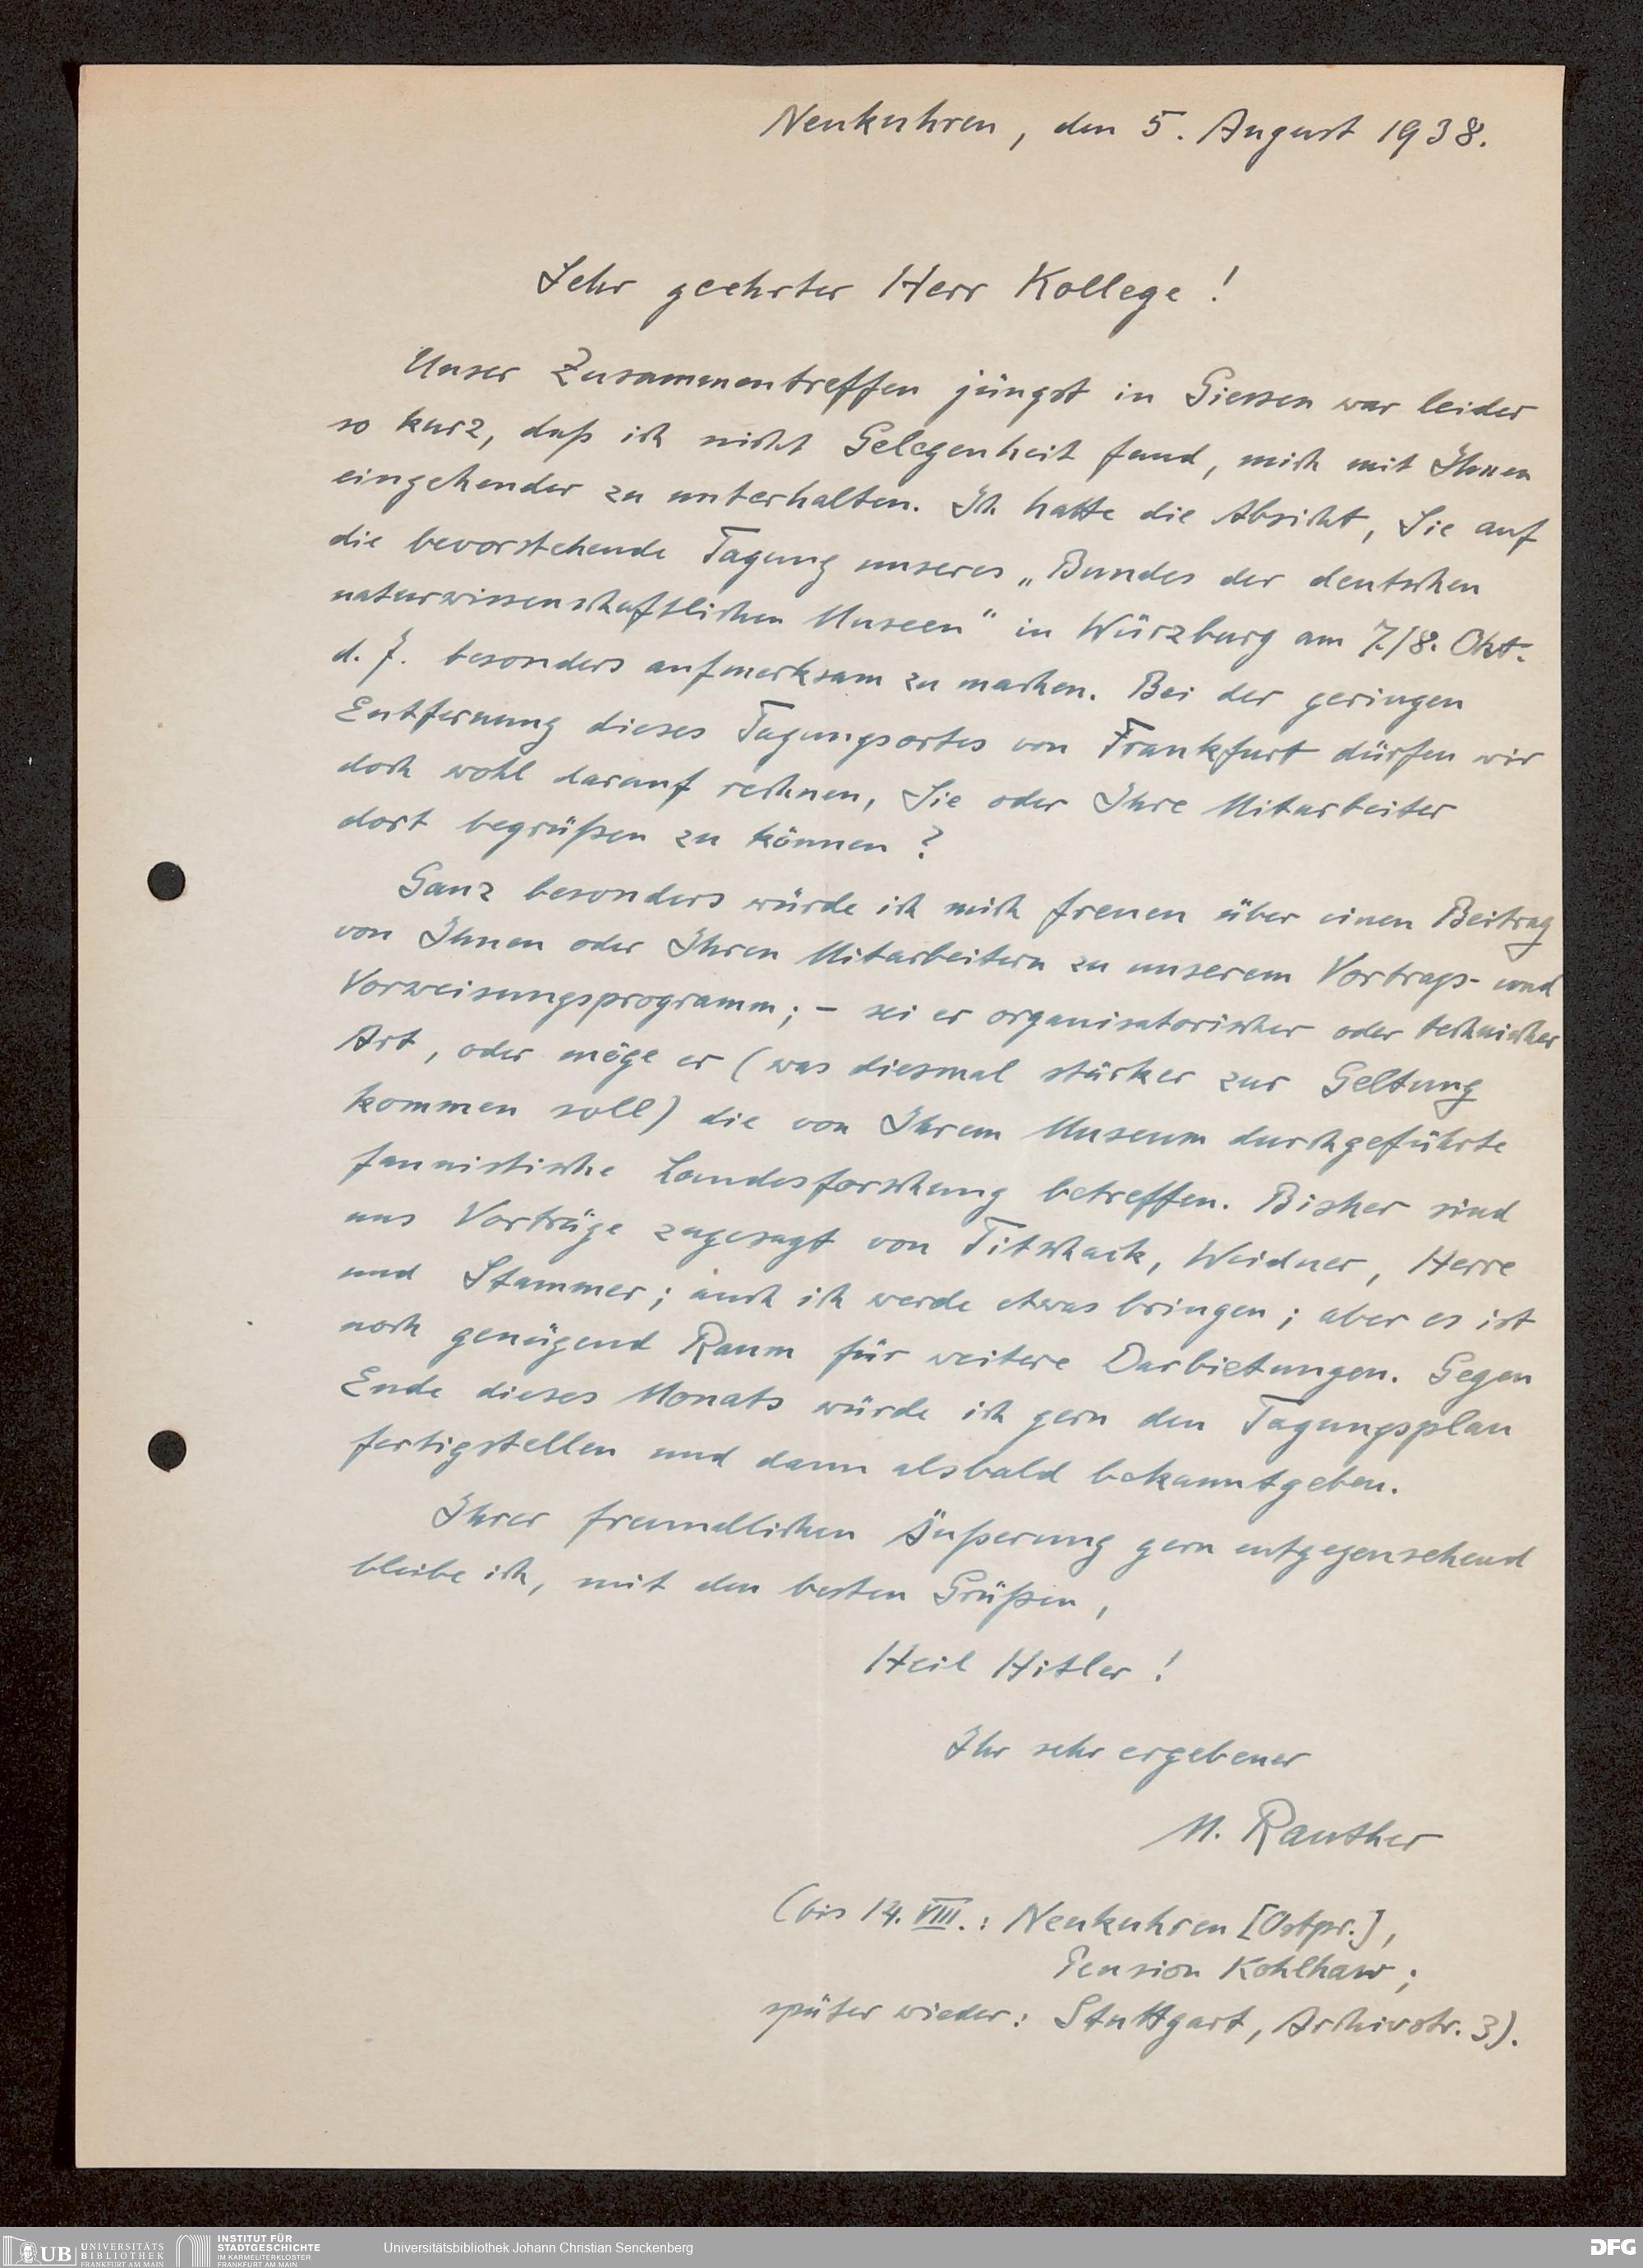 Neukuhren, den 5. August 1938.
Sehr geehrter Herr Kollege!
Unser Zusammentreffen jüngst in Giessen war leider
so kurz, daß ich nicht Gelegenheit fand, mich mit Ihnen
eingehender zu unterhalten. Ich hatte die Absicht, Sie auf
die bevorstehende Tagung unseres „Bundes der deutschen
naturwissenschaftlichen Museen" in Würzburg am 7./8. Okt.
d. J. besonders aufmerksam zu machen. Bei der geringen
Entfernung dieses Tagungsortes von Frankfurt dürfen wir
doch wohl darauf rechnen, Sie oder Ihre Mitarbeiter
dort begrüßen zu können?
Ganz besonders würde ich mich freuen über einen Beitrag
von Ihnen oder Ihren Mitarbeitern zu unserem Vortrags- und
Vorweisungsprogramm; – sei er organisatorischer oder technischer
Art, oder möge er (was diesmal stärker zur Geltung
kommen soll) die von Ihrem Museum durchgeführte
faunistische Landesforschung betreffen. Bisher sind
uns Vorträge zugesagt von Titschack, Weidner, Herre
und Stammer; auch ich werde etwas bringen; aber es ist
noch genügend Raum für weitere Darbietungen. Gegen
Ende dieses Monats würde ich gern den Tagungsplan
fertigstellen und dann alsbald bekanntgeben.
Ihrer freundlichen Äußerung gern entgegensehend
bleibe ich, mit den besten Grüßen,
Heil Hitler!
Ihr sehr ergebener
M. Rauther
(bis 14. VIII.: Neukuhren [Ostpr.],
Pension Kohlhaw;
später wieder: Stuttgart, Archivstr. 3).
UB UNIVERSITÄTS BIBLIOTHEK FRANKFURT AM MAIN
INSTITUT FÜR STADTGESCHICHTE IM KARMELITERKLOSTER FRANKFURT AM MAIN
Universitätsbibliothek Johann Christian Senckenberg
DFG